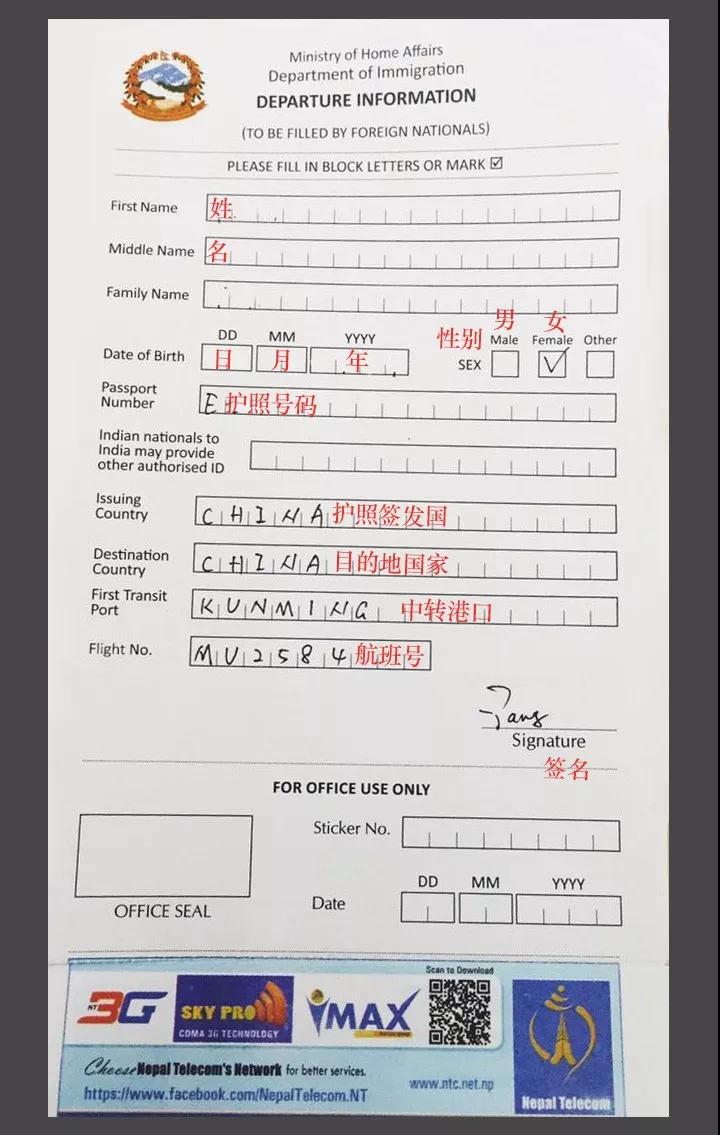 Ministry of Home Affairs
Department of Immigration
DEPARTURE INFORMATION
(TO BE FILLED BY FOREIGN NATIONALS)
PLEASE FILL IN BLOCK LETTERS OR MARK ☑
First Name 姓
Middle Name 名
Family Name
男 女
DD MM YYYY 性别 Male Female Other
Date of Birth 日 月 年 SEX ✓
Passport
Number E 护照号码
Indian nationals to
India may provide
other authorised ID
Issuing
Country CHINA 护照签发国
Destination
Country CHINA 目的地国家
First Transit
Port KUNMING 中转港口
Flight No. MU2584 航班号
Jang
Signature
签名
FOR OFFICE USE ONLY
Sticker No.
DD MM YYYY
Date
OFFICE SEAL
Scan to Download
NT 3G SKY PRO CDMA 3G TECHNOLOGY
MAX
Choose Nepal Telecom's Network for better services.
https://www.facebook.com/NepalTelecom.NT www.ntc.net.np
Nepal Telecom